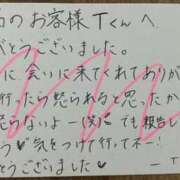 のお客様Tくんへ
がとうございました。
に、会いに来てくれてありが
行ったら怒られると思ったか
らないよー(笑)でも報告し
う♡気をつけて行ってネー!
とうございました♥
ーT